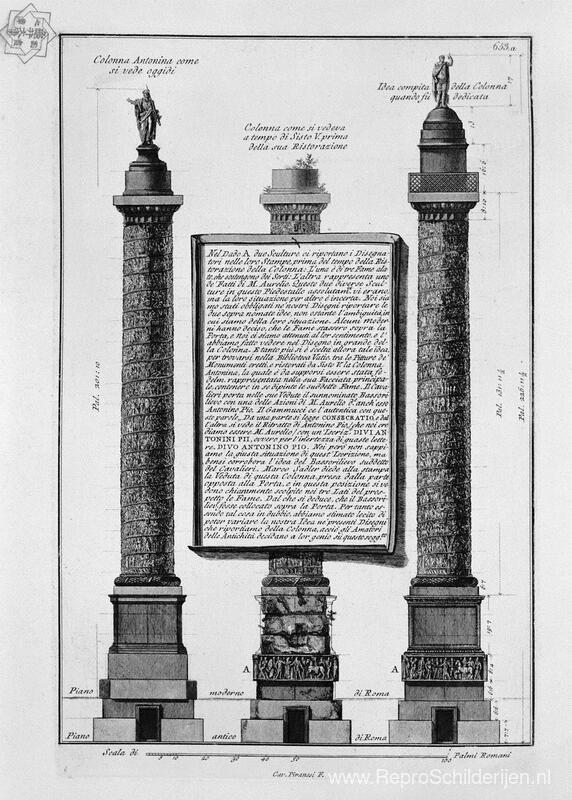 653.a
Colonna Antonina come
si vede oggidì
Idea compita della Colonna
quando fu dedicata
Colonna come si vedeva
a tempo di Sisto V. prima
della sua Ristorazione
Nel Dado A due Sculture ci riportano i Disegna-
tori nelle loro Stampe, prima del tempo della Ris-
torazione della Colonna: L'una è di tre Fame ala-
te, che sostengono dei Serti: L'altra rappresenta uno
de' Fatti di M. Aurelio. Queste due diverse Scul-
ture in questo Piedestallo assolutam. vi erano,
ma la loro situazione per altro è incerta. Noi sia-
mo stati obbligati ne' nostri Disegni riportare le
due sopra nomate idee, non ostante l'ambiguità in
cui siamo della loro situazione. Alcuni moder-
ni hanno deciso, che le Fame stassero sopra la
Porta, e Noi ci siamo attenuti al lor sentimento, e l'
abbiamo fatto vedere nel Disegno in grande del-
la Colonna. E tanto più si è scelta allora tal idea,
per trovarsi nella Biblioteca Vatic. tra le Pitture de'
Monumenti eretti, e ristorati da Sisto V. la Colonna
Antonina, la quale è da supporsi essere stata fe-
delm. rappresentata nella sua Facciata principa-
le, contenere in se dipinte le suddette Fame. Il Cava-
lieri porta nelle sue Vedute il sunnominato Bassori-
lievo con una delle Azioni di M. Aurelio d'anch'esso
Antonino Pio. Il Gammucci ce l'autentica con que-
ste parole. Da una parte si legge CONSECRATIO, e dal
l'altra si vede il Ritratto di Antonino Pio, (che noi cre
diamo essere M. Aurelio) con un'Iscriz. DIVI AN-
TONINI PII, ovvero per l'intertezza di queste lette-
re, DIVO ANTONINO PIO. Noi però non sappi-
amo la giusta situazione di quest' Iscrizione, ma
bensì corrobora l'idea del Bassorilievo suddetto
del Cavalieri. Marco Sadler diede alla stampa
la Veduta di questa Colonna, presa dalla parte
opposta alla Porta, e in questa posizione si ve-
dono chiaramente scolpite nei tre Lati del pros-
petto le Fame. Dal che si deduce, che il Bassori-
lievo fosse collocato sopra la Porta. Per tanto es-
sendo tal cosa in dubbio, abbiamo stimato lecito di
poter variare la nostra Idea ne' presenti Disegni
che riportiamo della Colonna, acciò gli Amatori
delle Antichità decidano a lor genio su questo sogg.tto
Pal. 201:10
Pal. 131:11½
Pal. 226:11½
A
A
Piano moderno di Roma
Piano antico di Roma
Scala di 5 10 20 30 40 50 100 Palmi Romani
Cav. Piranesi F.
www.ReproSchilderijen.nl